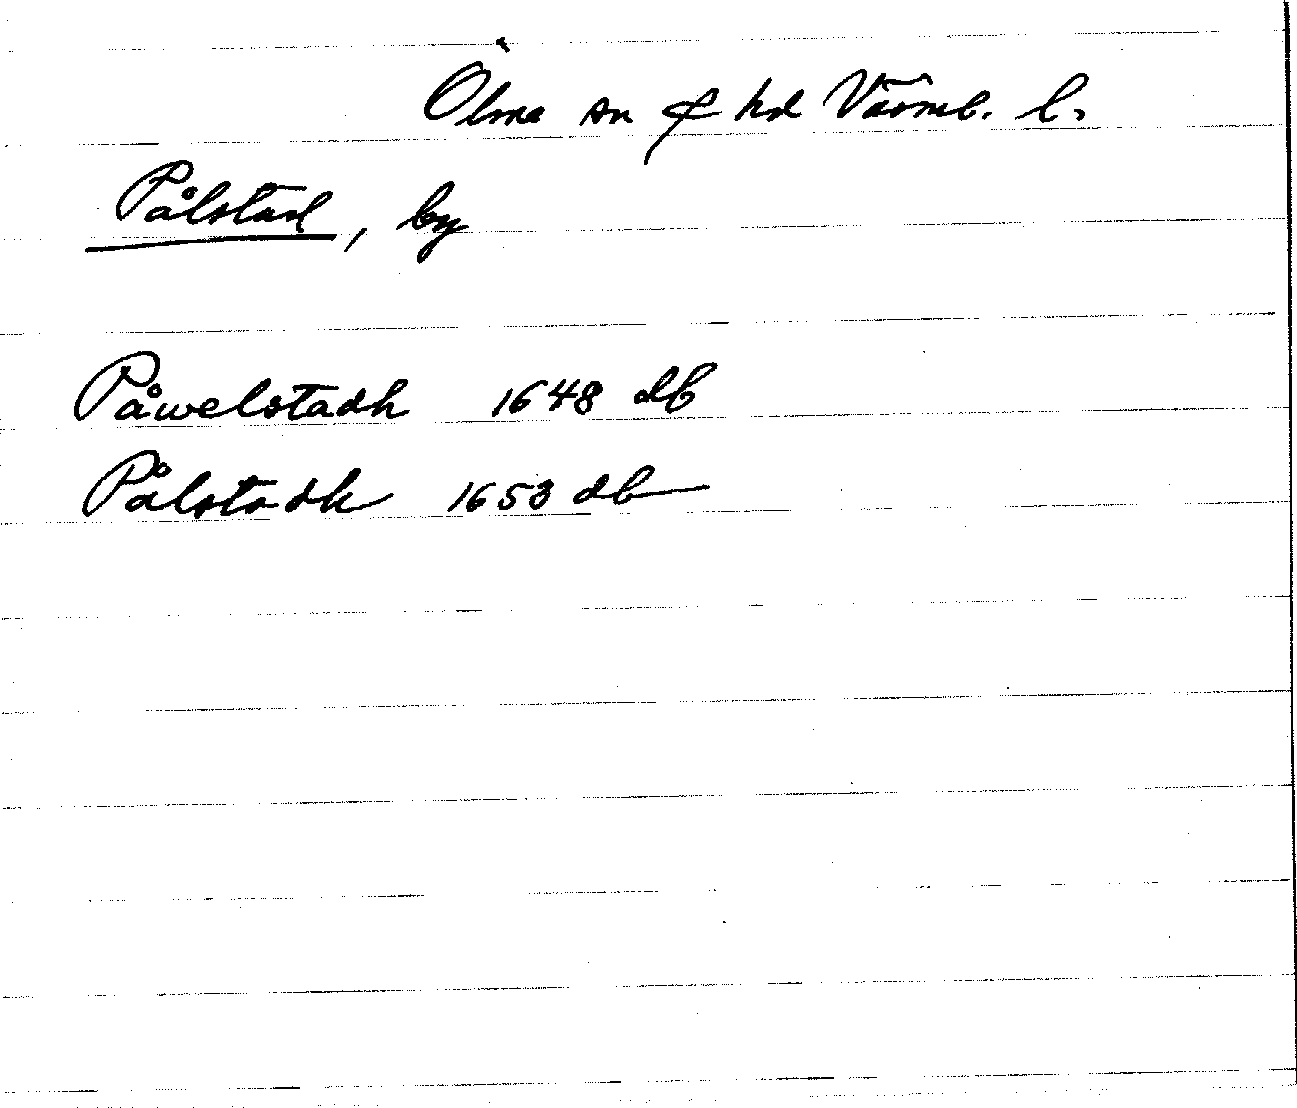 Ölme sn & hd Värml. l.
Pålstad, by
Påwelstadh 1648 db
Pålstadh 1653 db